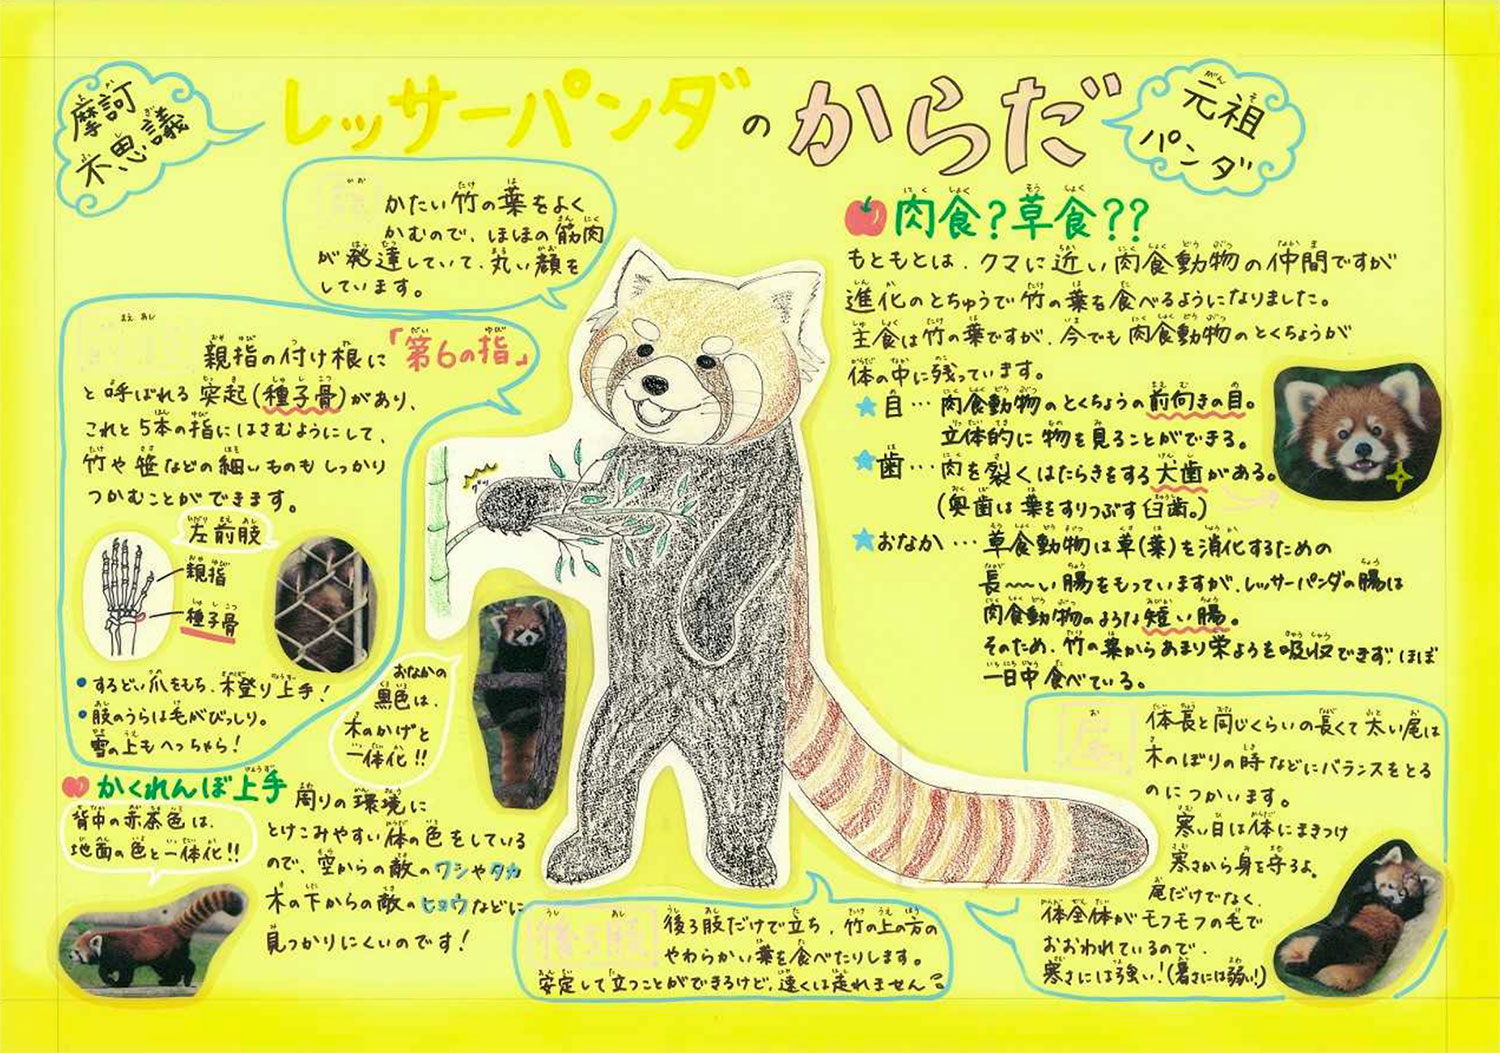 摩訶
不思議
レッサーパンダのからだ
元祖
パンダ
かたい竹の葉をよく
かむので、ほほの筋肉
が発達していて、丸い顔を
しています。
親指の付け根に「第6の指」
と呼ばれる突起(種子骨)があり、
これと5本の指にはさむようにして、
竹や笹などの細いものもしっかり
つかむことができます。
左前肢
親指
種子骨
・するどい爪をもち、木登り上手!
・肢のうらは毛がびっしり。
雪の上もへっちゃら!
おなかの
黒色は、
木のかげと
一体化!!
かくれんぼ上手
背中の赤茶色は、
地面の色と一体化!!
周りの環境に
とけこみやすい体の色をしている
ので、空からの敵のワシやタカ
木の下からの敵のヒョウなどに
見つかりにくいのです!
肉食?草食??
もともとは、クマに近い肉食動物の仲間ですが
進化のとちゅうで竹の葉を食べるようになりました。
主食は竹の葉ですが、今でも肉食動物のとくちょうが
体の中に残っています。
★目…肉食動物のとくちょうの前向きの目。
立体的に物を見ることができる。
★歯…肉を裂くはたらきをする犬歯がある。
(奥歯は葉をすりつぶす臼歯。)
★おなか…草食動物は草(葉)を消化するための
長〜い腸をもっていますが、レッサーパンダの腸は
肉食動物のような短い腸。
そのため、竹の葉からあまり栄ようを吸収できず、ほぼ
一日中食べている。
尾
体長と同じくらいの長くて太い尾は
木のぼりの時などにバランスをとる
のにつかいます。
寒い日は体にまきつけ
寒さから身を守るよ。
尾だけでなく、
体全体がモフモフの毛で
おおわれているので、
寒さには強い!(暑さには弱い!)
後ろ肢
後ろ肢だけで立ち、竹の上の方の
やわらかい葉を食べたりします。
安定して立つことができるけど、遠くは走れません